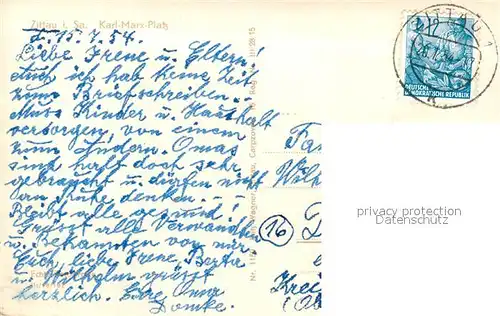 Zittau i. Sa. Karl-Marx-Platz
Z. 15.7.54.
Liebe Irene u. Eltern!
Auch ich hab keine Zeit
zum Briefschreiben.
Muss Kinder u. Haushalt
versorgen, von einem
zum Andern. Omas
sind halt doch sehr
gebraucht u. dürfen nicht
an Ruhe denken.
Bleibt alle gesund!
Grüsst alle Verwandten
u. Bekannten von mir
Euch, liebe Irene, Berta
u. Wilhelm grüsst
herzlich. Eure Oma
Domke.
III-28-15
ZITTAU 1
DEUTSCHE
DEMOKRATISCHE REPUBLIK
Fa
Wilh
16
Kreis
(Ob
privacy protection
www.ansichtskarten-center.de